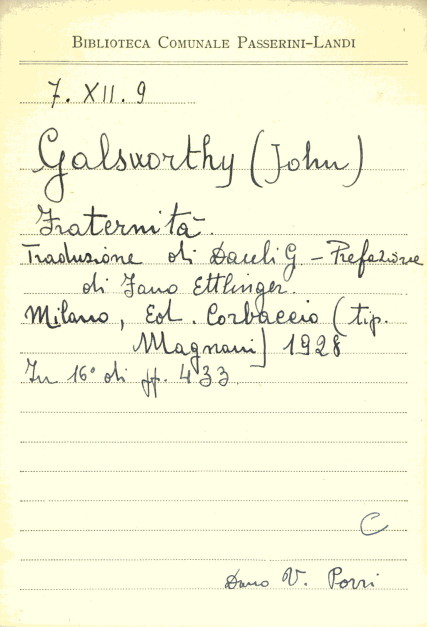 BIBLIOTECA COMUNALE PASSERINI-LANDI
7. XII. 9
Galsworthy (John)
Fraternità.
Traduzione di Dauli G - Prefazione
di Fano Ettlinger.
Milano, Ed. Corbaccio (tip.
Magnani) 1928
In 16° di pp. 433
C
Dono V. Porri